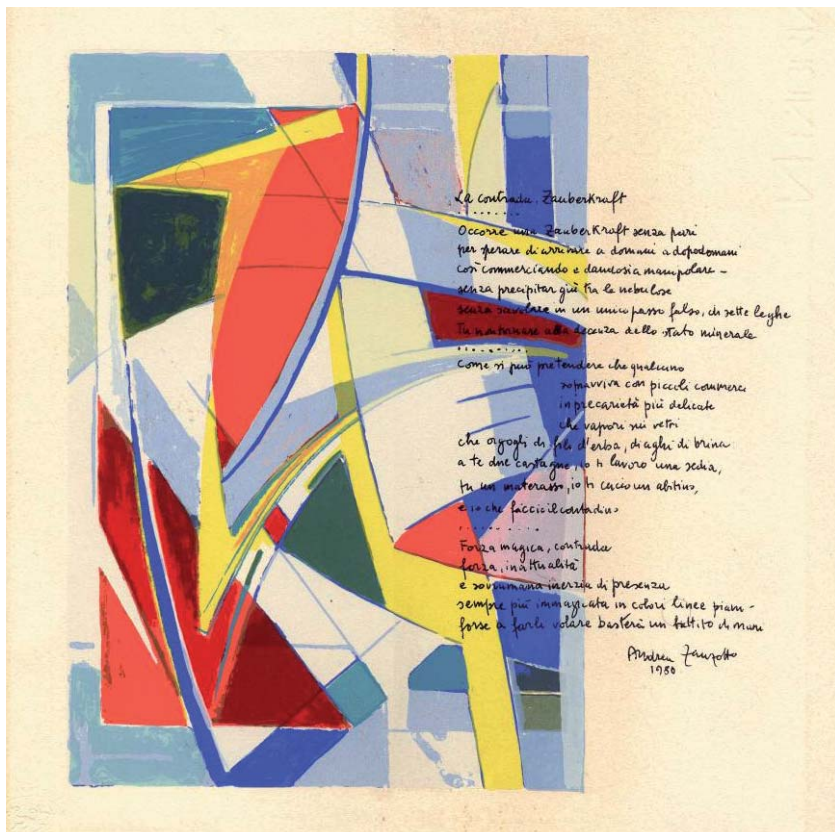 La contrada. Zauberkraft
........
Occorre una Zauberkraft senza pari
per sperare di arrivare a domani a dopodomani
così commerciando e dandosi a manipolare –
senza precipitar giù tra le nebulose
senza scivolare in un unico passo falso, di sette leghe
ritornare alla decenza dello stato minerale
..........
Come si può pretendere che qualcuno
sopravviva con piccoli commerci
in precarietà più delicate
che vapori sui vetri
che orgogli di fili d'erba, di aghi di brina:
a te due castagne, io ti lavoro una sedia,
tu un materasso, io ti cucio un abitino,
e io che faccio il contadino
..........
Forza magica, contrada
forza, inattualità
e sovrumana inerzia di presenza
sempre più immagicata in colori linee piani –
forse a farli volare basterà un battito di mani
Andrea Zanzotto
1980